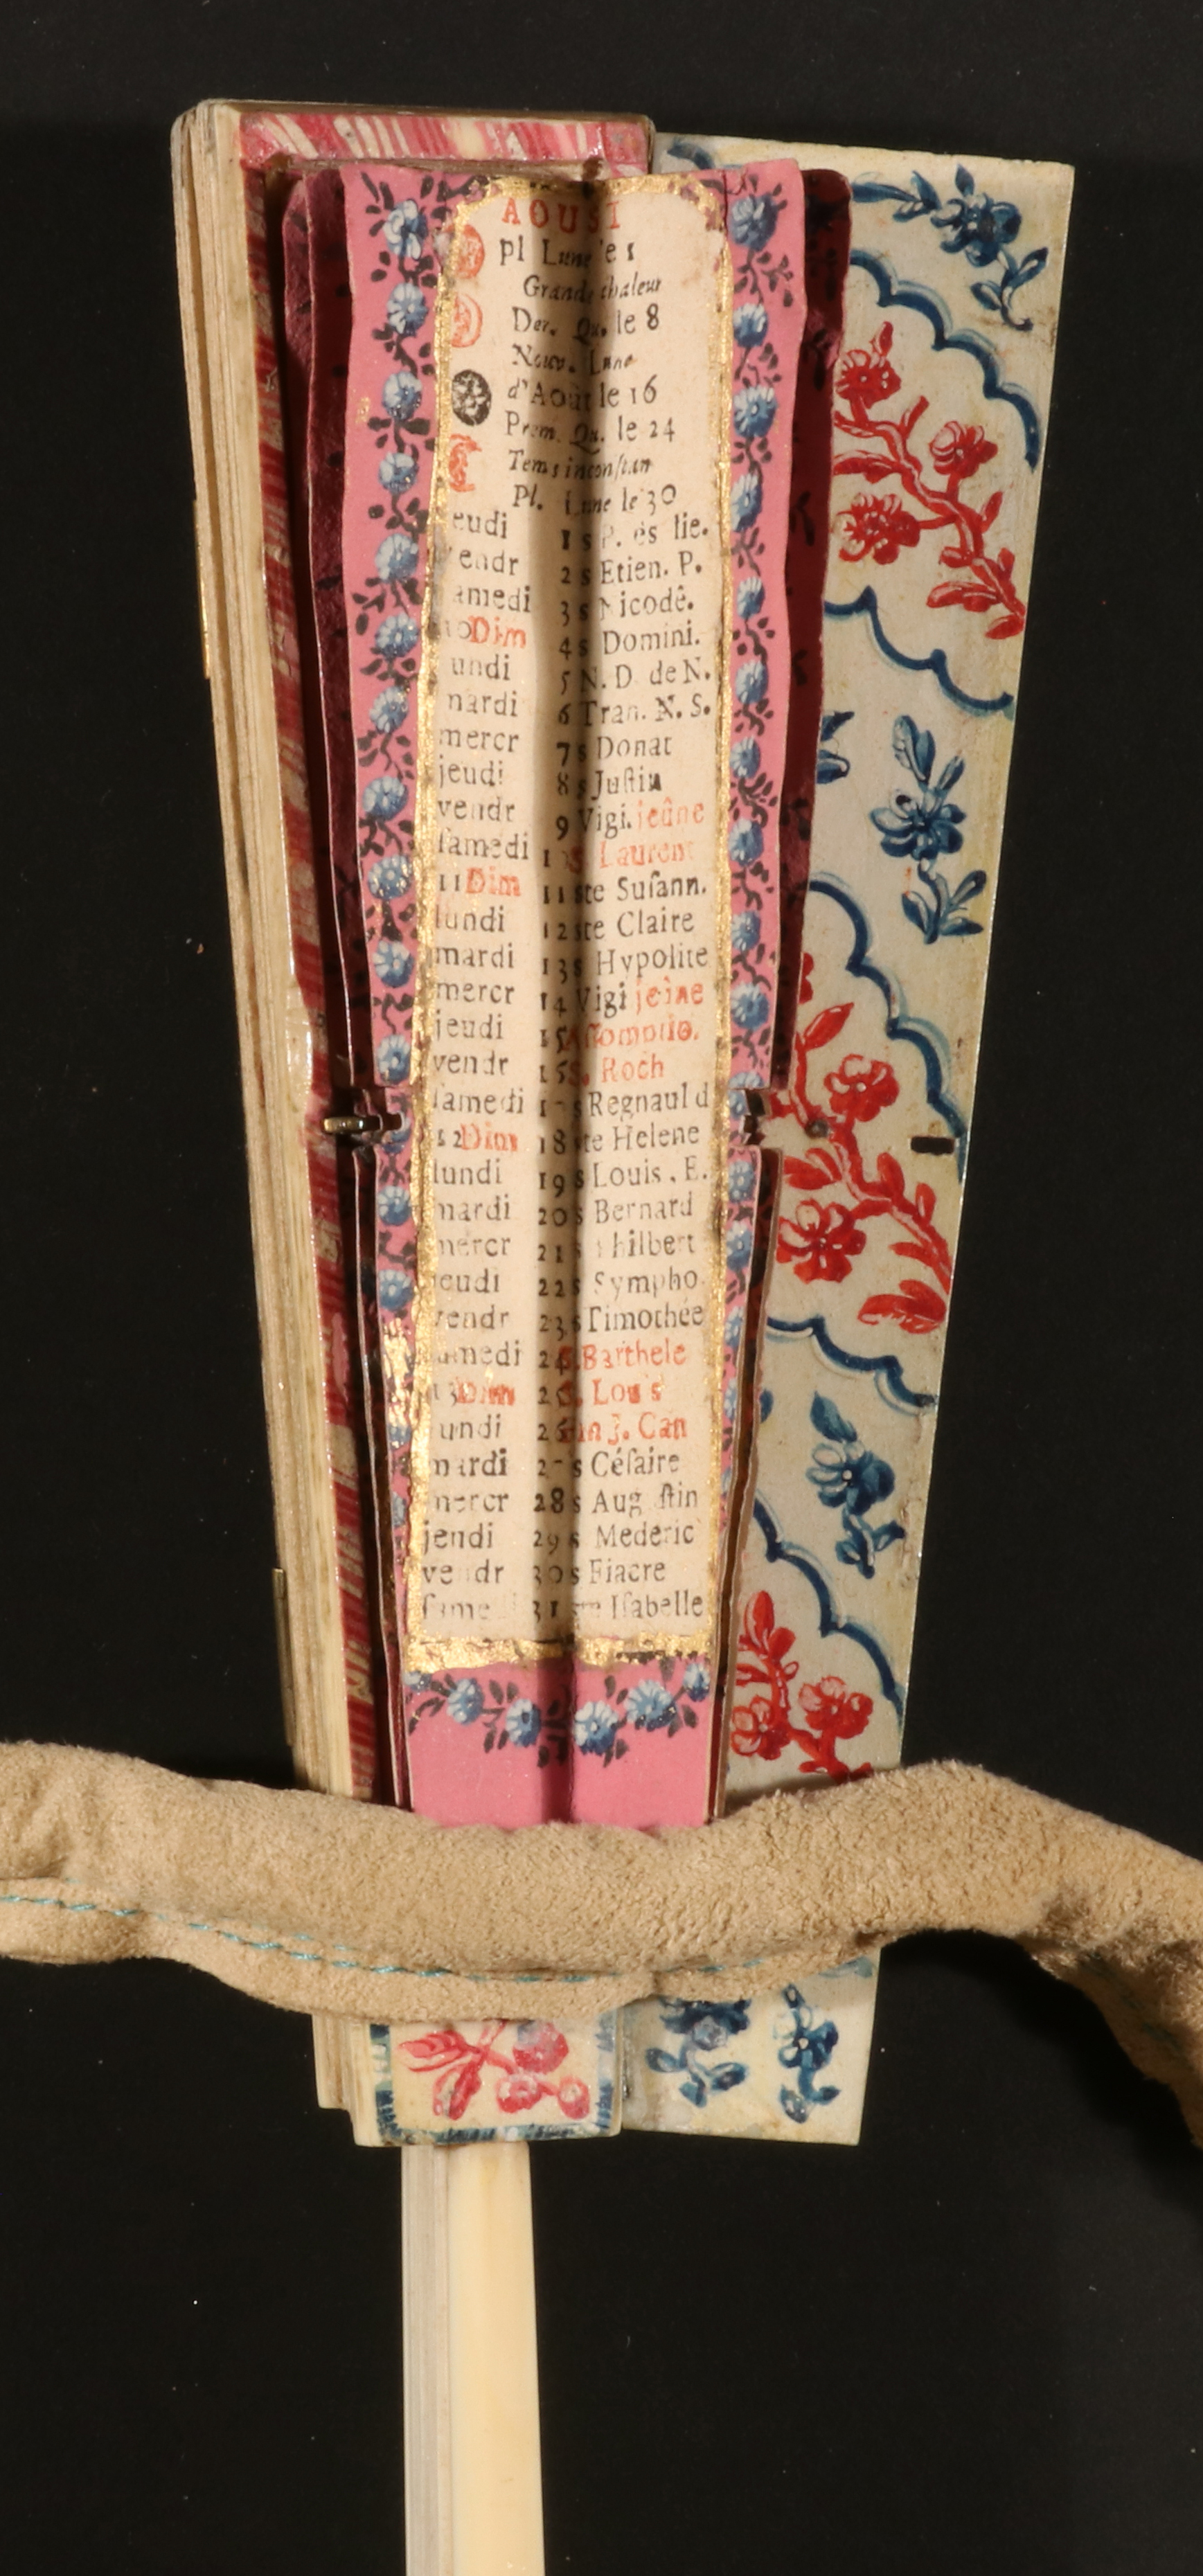 AOUST
pl Lune le 1
Grande chaleur
Der. Qu. le 8
Nouv. Lune
d'Août le 16
Prem. Qu. le 24
Tems inconſtan
Pl. Lune le 30
jeudi 1 s P. és lie.
vendr 2 s Etien. P.
ſamedi 3 s Nicodê.
10 Dim 4 s Domini.
lundi 5 N. D. de N.
mardi 6 Tran. N. S.
mercr 7 s Donat
jeudi 8 s Juſtin
vendr 9 Vigi. jeûne
ſamedi 10 S. Laurent
11 Dim 11 ste Suſann.
lundi 12 ste Claire
mardi 13 s Hypolite
mercr 14 Vigi jeûne
jeudi 15 Aſſomptio.
vendr 16 S. Roch
ſamedi 17 s Regnauld
12 Dim 18 ste Helene
lundi 19 s Louis, E.
mardi 20 s Bernard
mercr 21 s Philbert
jeudi 22 s Sympho.
vendr 23 s Timothée
ſamedi 24 S. Barthele
13 Dim 25 S. Louis
lundi 26 Fin J. Can
mardi 27 s Céſaire
mercr 28 s Auguſtin
jeudi 29 s Mederic
vendr 30 s Fiacre
ſame 31 ste Iſabelle